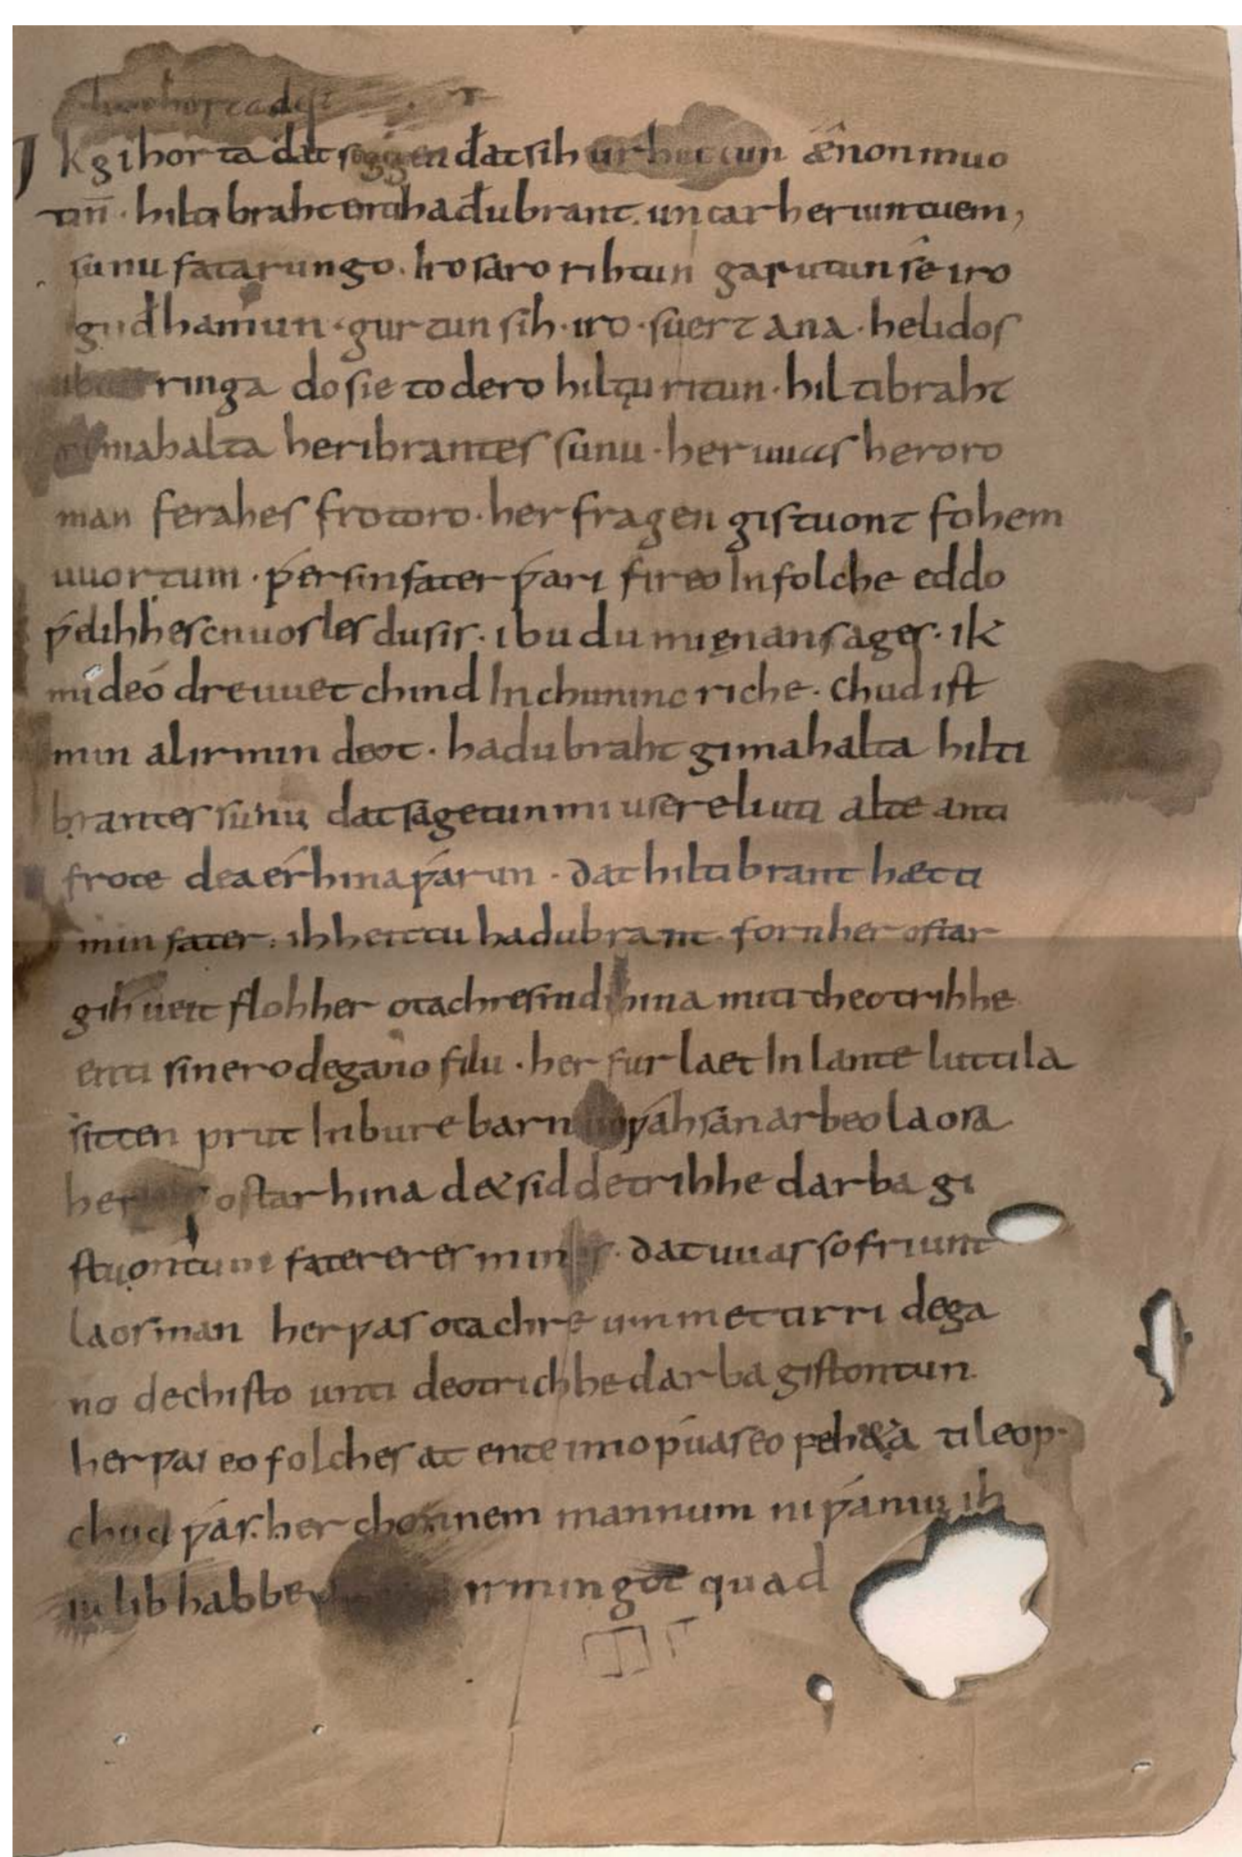 Ik gihorta đat seggen đat sih urhettun ænon muo
tin · hiltibraht enti hađubrant · untar heriun tuem,
sunu fatarungo · Iro saro rihtun garutun sê iro
guđhamun · gurtun sih · iro · suert ana · helidos
ubar ringa do sie to dero hiltu ritun · hiltibraht
gimahalta heribrantes sunu · her uuas heroro
man ferahes frotoro · her fragen gistuont fohem
uuortum · ƿer sin fater ƿari fireo In folche eddo
ƿelihhes cnuosles du sis · ibu du mi ęnan sages · ik
mi deo dre uuet chind In chunincriche · chud ist
min al irmin deot · hadubraht gimahalta hilti
brantes sunu dat sagetun mi usere liuti alte anti
frote dea érhina ƿarun · dat hiltibrant hætti
min fater · ih heittu hadubrant · forn her ostar
gih ueit floh her otachres nid hina miti theotrihhe
enti sinero degano filu · her furlaet In lante luttila
sitten prut In bure barn unƿahsan arbeo laosa
her ostar hina det sid detrihhe darba gi
stuontum fatereres mines · dat uuas so friunt
laos man her ƿas otachre ummettirri dega
no dechisto unti deotrichhe darba gistontun
her ƿas eo folches at ente imo ƿuas eo ƿeheta ti leop ·
chud ƿas · her chonnem mannum ni ƿaniu ih
iu lib habbe irmingot quad